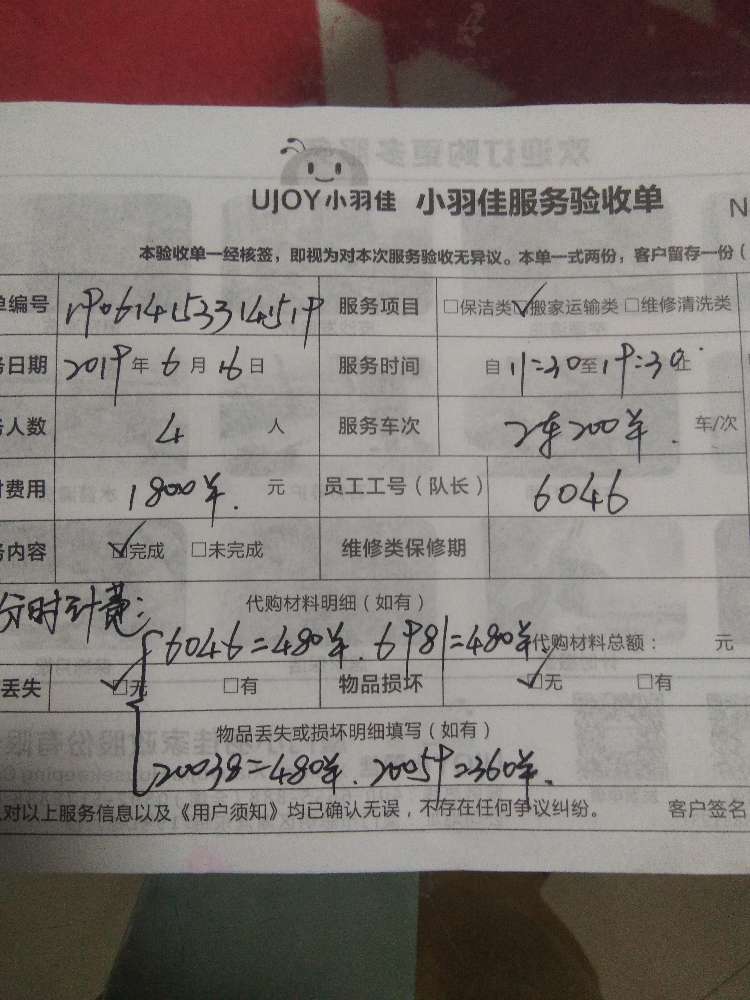 UJOY小羽佳 小羽佳服务验收单 N
本验收单一经核签，即视为对本次服务验收无异议。本单一式两份，客户留存一份（
单编号 190614153314519 服务项目 □保洁类 ☑搬家运输类 □维修清洗类
务日期 2019年6月16日 服务时间 自11:30至19:30止
务人数 4人 服务车次 2车200羊. 车/次
付费用 1800羊. 元 员工工号（队长） 6046
务内容 ☑完成 □未完成 维修类保修期
分时计费: 代购材料明细（如有）
6046=480羊. 6981=480羊. 代购材料总额： 元
丢失 ☑无 □有 物品损坏 ☑无 □有
物品丢失或损坏明细填写（如有）
20038=480羊. 20059=360羊.
对以上服务信息以及《用户须知》均已确认无误，不存在任何争议纠纷。 客户签名